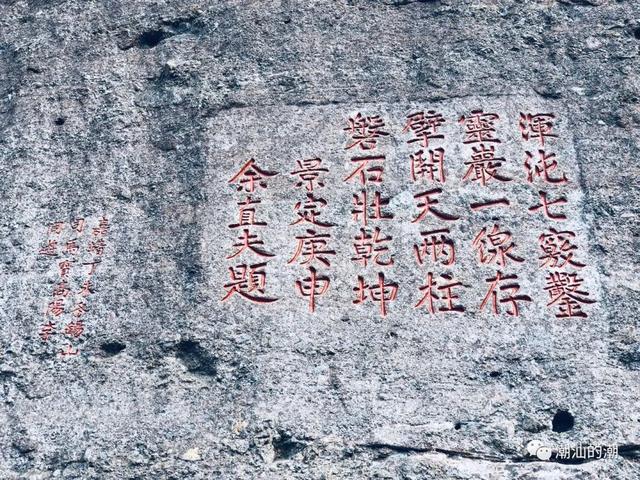 渾沌七竅鑿
靈巖一線存
擘開天兩柱
磐石壯乾坤
景定庚申
余直夫題
嘉靖丁未
潮汕的潮